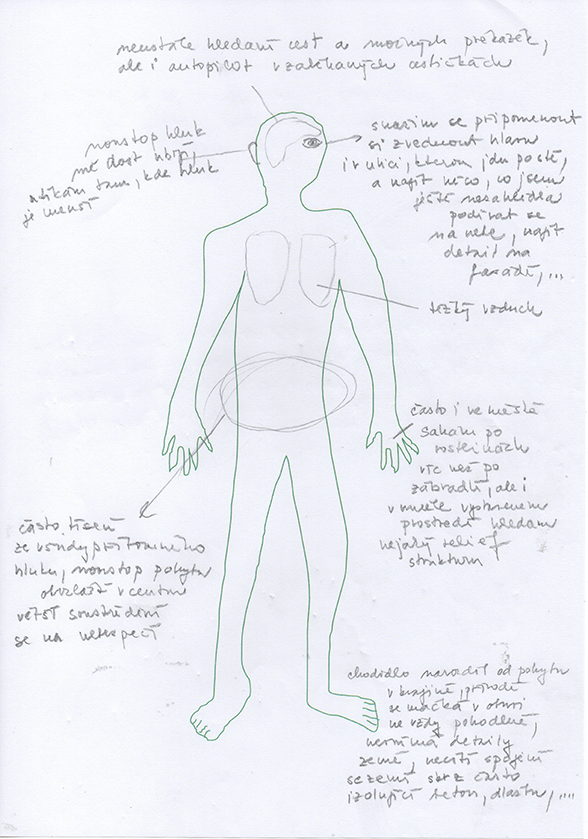 neustálé hledání cest a možných překážek,
ale i autopilot v zalkhaných cestičkách
nonstop hluk
mě dost ubíjí,
utíkám tam, kde hluk
je menší
snažím se připomenout
si zvednout hlavu
i v ulici, kterou jdu po sté,
a najít něco, co jsem
ještě nezahlédla
podívat se
na nebe, najít
detail na
fasádě, ...
těžký vzduch
často i ve městě
sahám po
rostlinách
víc než po
zábradlí, ale i
v uměle vystaveném
prostředí hledám
nějaký relief
strukturu
často tíseň
ze všudypřítomného
hluku, nonstop pohybu
obzvlášť v centru
větší soustředění
se na nebezpečí
chodidlo narozdíl od pohybu
v krajině, přírodě
se mačká v obuvi
ne vždy pohodlné,
nevnímá detaily
země, necítí spojení
se zemí skrz často
izolující beton, dlažbu, ....